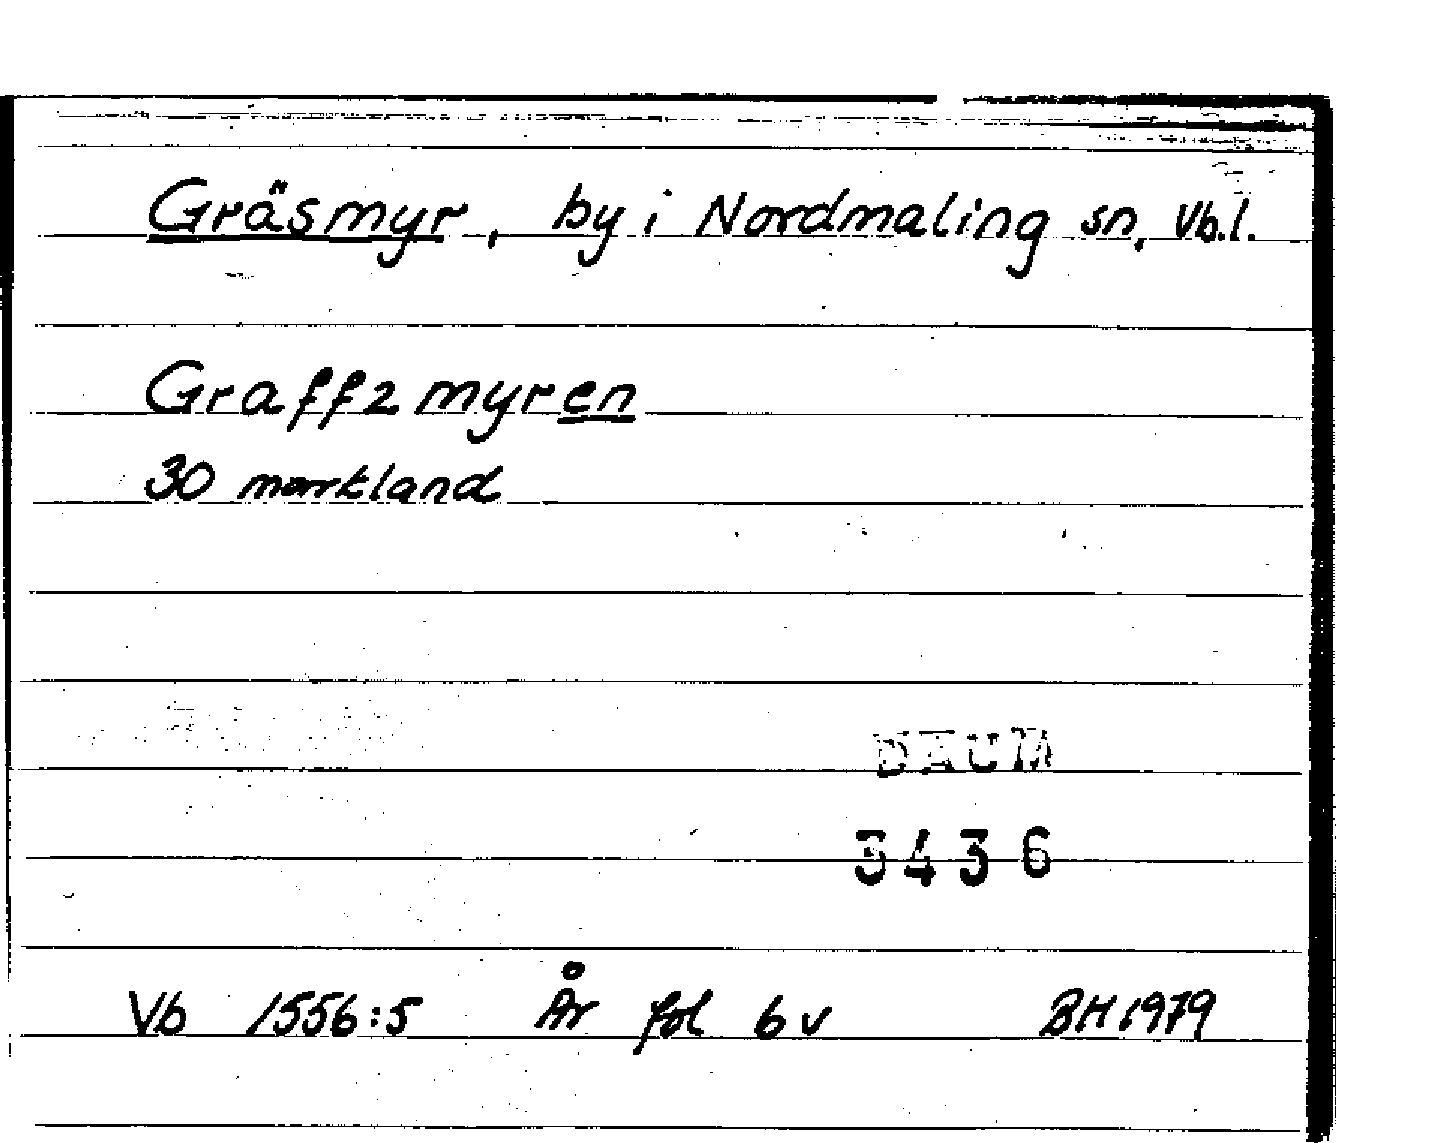 Gräsmyr, by i Nordmaling sn, Vb.l.
Graffzmyren
30 markland
DAUM
3436
Vb 1556:5 År fol 6v BH 1979